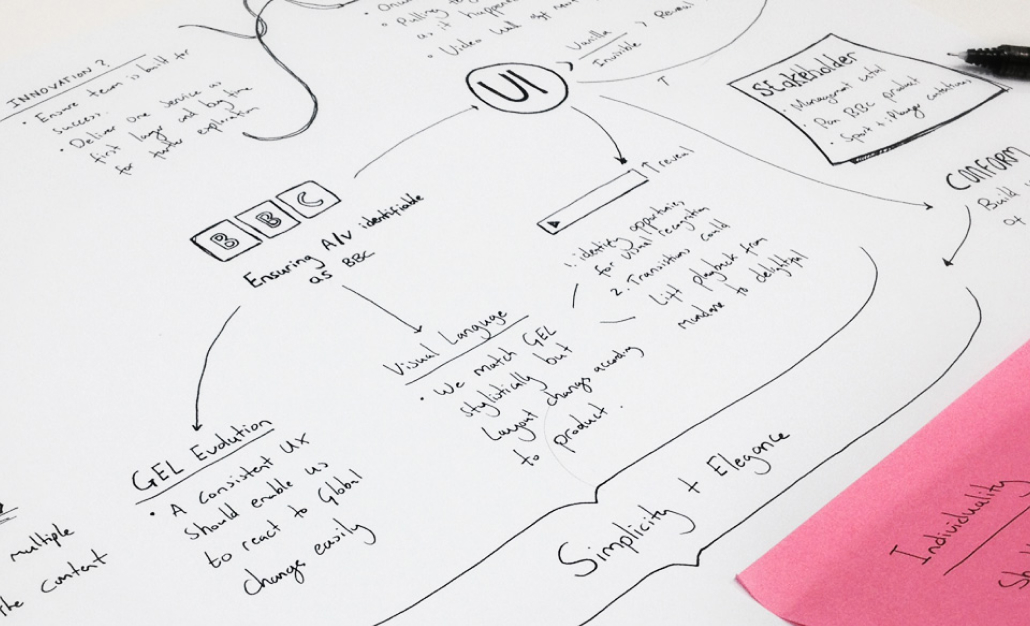 INNOVATION?
• Ensure team is built for
success.
• Deliver one service as
first larger and buy time
for further exploration
• Pulling
as it happens
• Video wall
Vanilla > Reveal
Invisible
UI
Stakeholder
• Management
• Pan BBC product
• Sport + iPlayer
CONFORM
Build
of
BBC
Ensuring A/V identifiable
as BBC
reveal
1. identify opportunities
for visual recognition
2. Transitions could
Lift playback from
mundane to delightful
Visual Language
• We match GEL
stylistically but
Layout change according
to product.
GEL Evolution
• A consistent UX
should enable us
to react to Global
change easily
multiple
the content
Simplicity + Elegance
Individuality